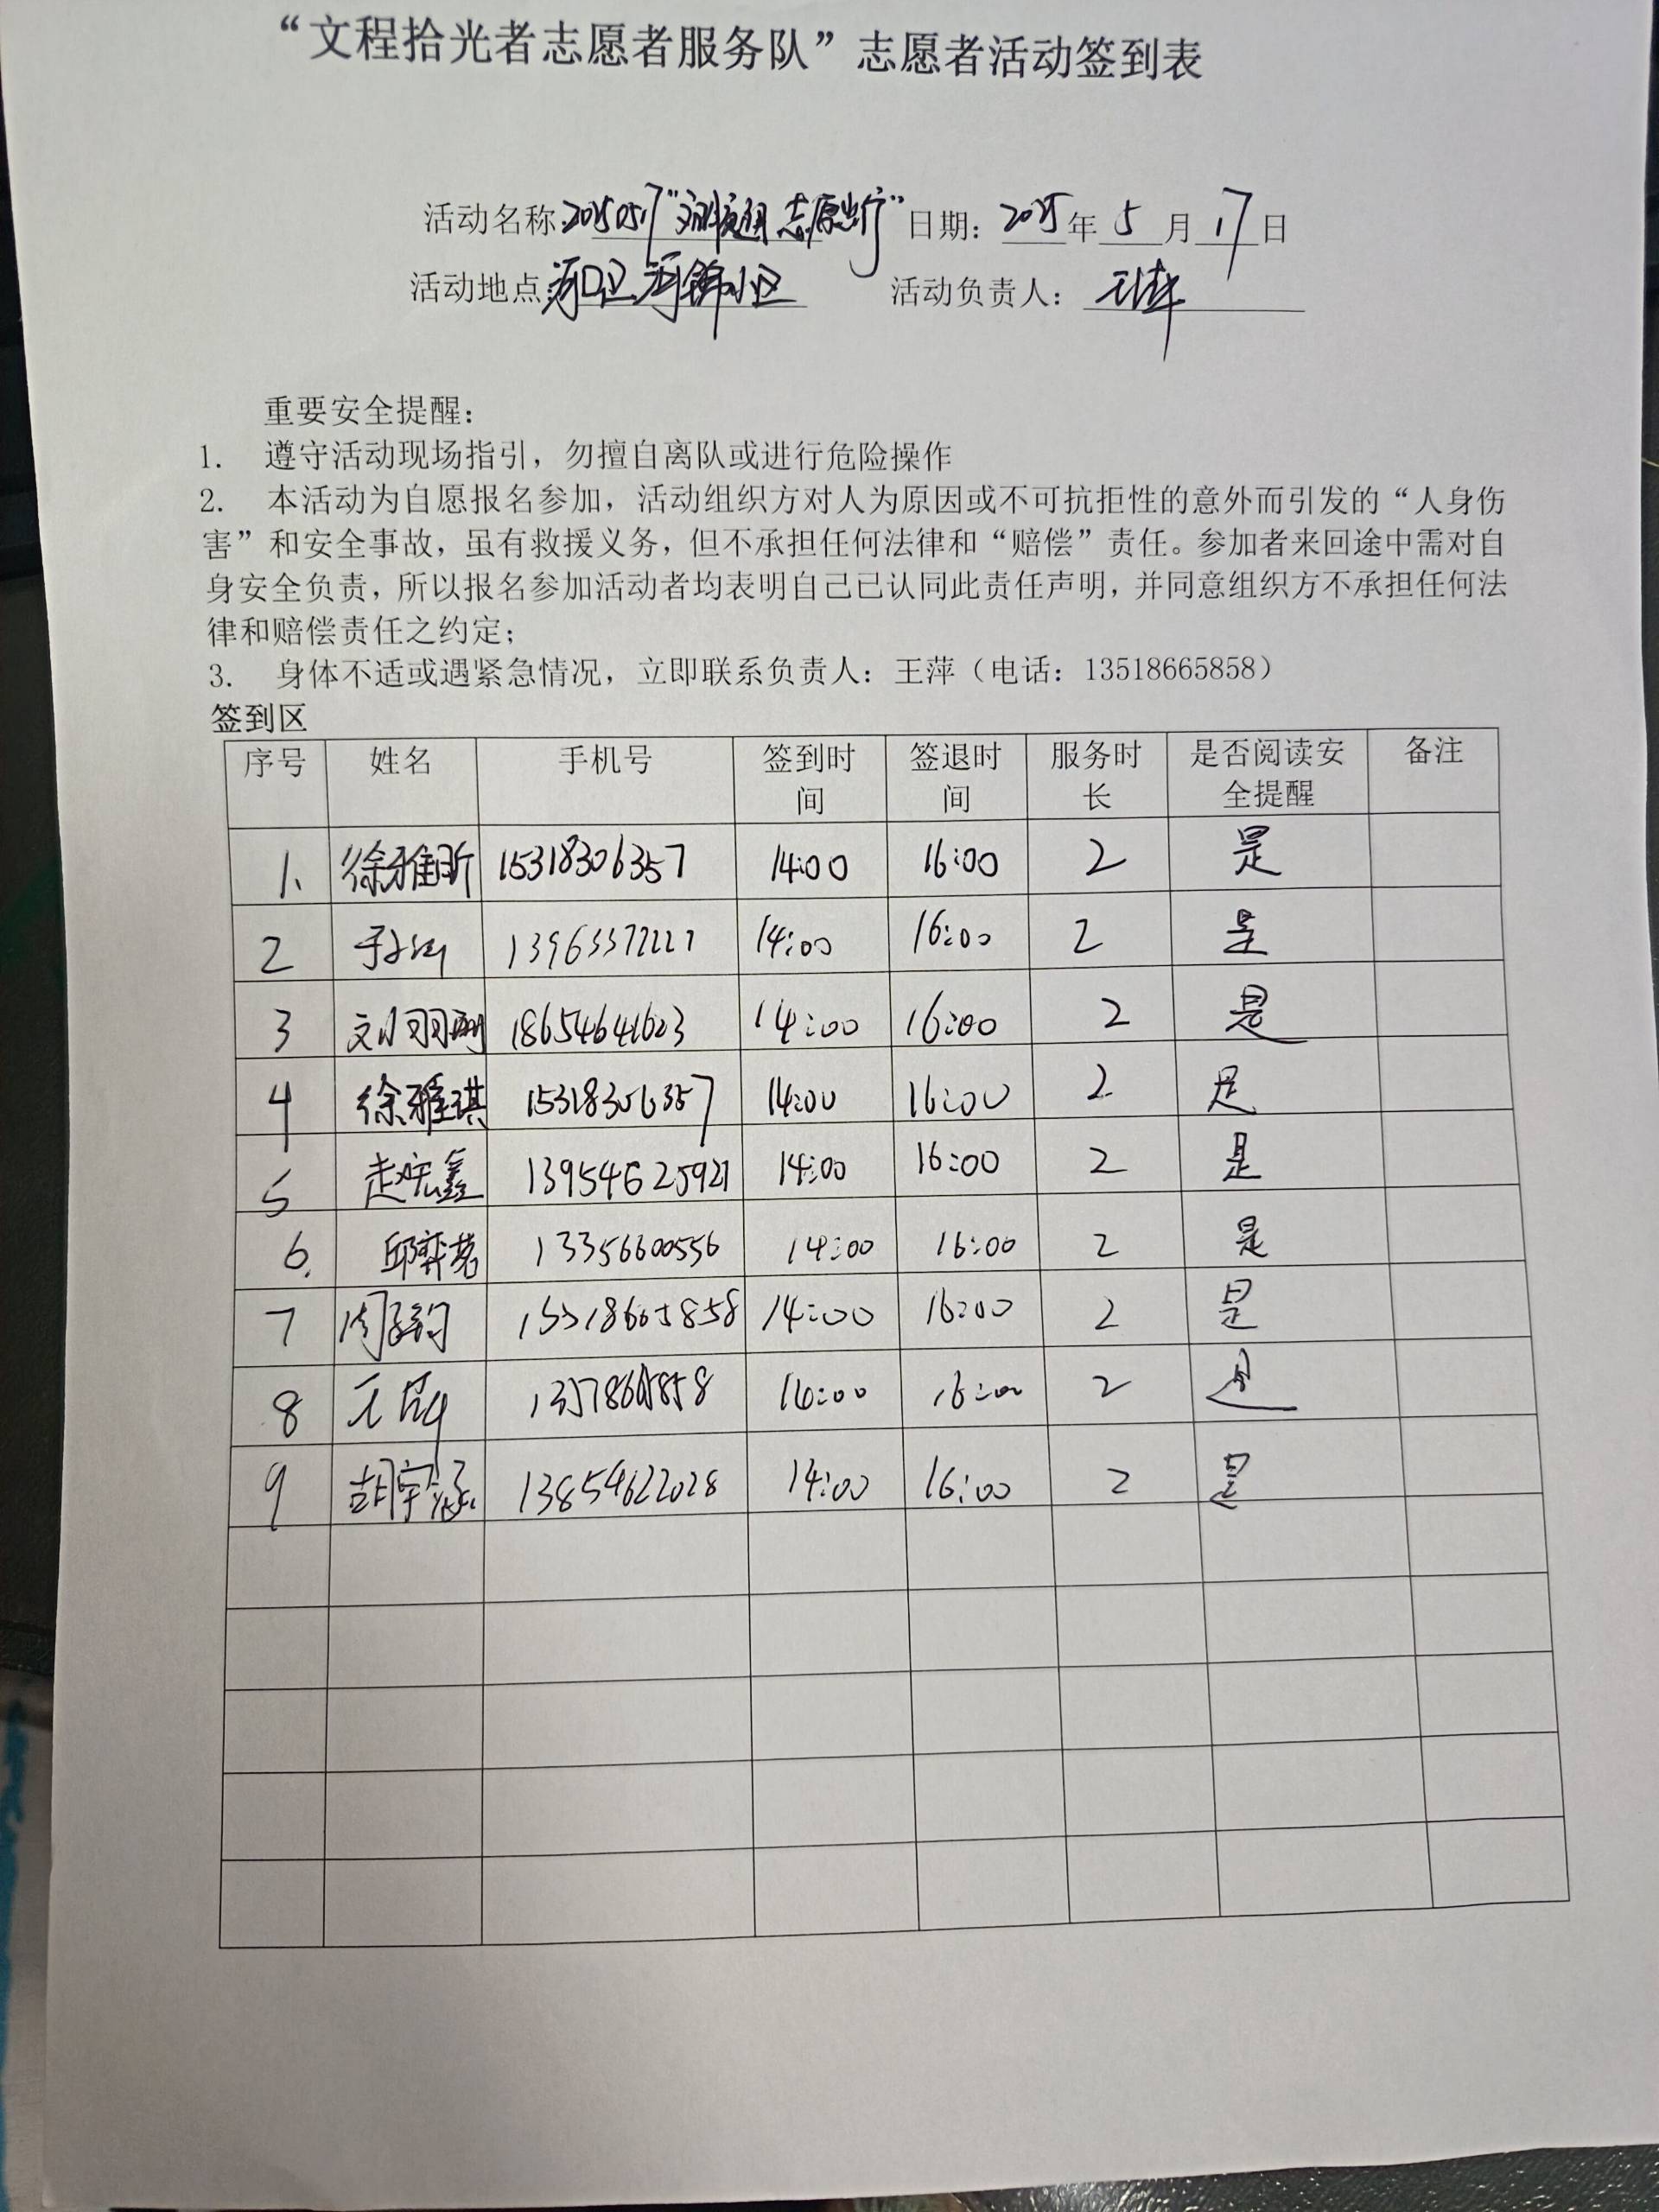 “文程拾光者志愿者服务队”志愿者活动签到表
活动名称:20250517“ 志愿出行”日期：2025年5月17日
活动地点:河口区河锦小区 活动负责人：王萍
重要安全提醒：
1. 遵守活动现场指引，勿擅自离队或进行危险操作
2. 本活动为自愿报名参加，活动组织方对人为原因或不可抗拒性的意外而引发的“人身伤
害”和安全事故，虽有救援义务，但不承担任何法律和“赔偿”责任。参加者来回途中需对自
身安全负责，所以报名参加活动者均表明自己已认同此责任声明，并同意组织方不承担任何法
律和赔偿责任之约定；
3. 身体不适或遇紧急情况，立即联系负责人：王萍（电话：13518665858）
签到区
序号 姓名 手机号 签到时间 签退时间 服务时长 是否阅读安全提醒 备注
1、 徐雅昕 15318306357 14:00 16:00 2 是
2 14:00 16:00 2 是
3 刘羽珊 18654641603 14:00 16:00 2 是
4 徐雅琪 15318306357 14:00 16:00 2 是
5 赵宏鑫 13954625921 14:00 16:00 2 是
6. 邱弈茗 13356600556 14:00 16:00 2 是
7 14:00 16:00 2 是
8 16:00 2 是
9 胡宇涵 13854622028 14:00 16:00 2 是